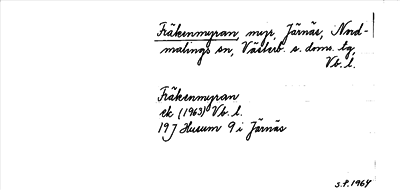 Fräkenmyran, myr, Järnäs, Nord-
malings sn, Västerb. s. doms. tg,
Vb. l.
Fräkenmyran
ek (1963) Vb. l.
19J Husum 9 i Järnäs
S.F. 1964